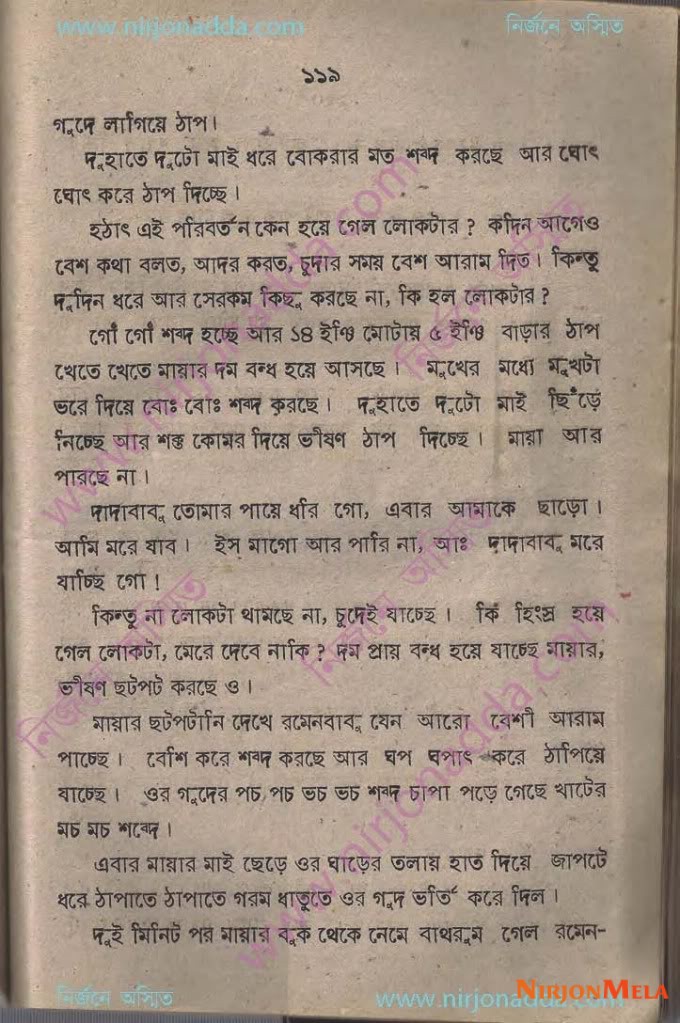 www.nirjonadda.com
নির্জনে অস্মিত
১১৯
গুদে লাগিয়ে ঠাপ।
দুহাতে দুটো মাই ধরে বোকরার মত শব্দ করছে আর ঘোৎ
ঘোৎ করে ঠাপ দিচ্ছে।
হঠাৎ এই পরিবর্তন কেন হয়ে গেল লোকটার ? কদিন আগেও
বেশ কথা বলত, আদর করত, চুদার সময় বেশ আরাম দিত। কিন্তু
দুদিন ধরে আর সেরকম কিছু করছে না, কি হল লোকটার ?
গোঁ গোঁ শব্দ হচ্ছে আর ১৪ ইঞ্চি মোটায় ৫ ইঞ্চি বাড়ার ঠাপ
খেতে খেতে মায়ার দম বন্ধ হয়ে আসছে। মুখের মধ্যে মুখটা
ভরে দিয়ে বোঃ বোঃ শব্দ করছে। দুহাতে দুটো মাই ছিঁড়ে
নিচ্ছে আর শক্ত কোমর দিয়ে ভীষণ ঠাপ দিচ্ছে। মায়া আর
পারছে না।
দাদাবাবু তোমার পায়ে ধরি গো, এবার আমাকে ছাড়ো।
আমি মরে যাব। ইস্ মাগো আর পারি না, আঃ দাদাবাবু মরে
যাচ্ছি গো !
কিন্তু না লোকটা থামছে না, চুদেই যাচ্ছে। কি হিংস্র হয়ে
গেল লোকটা, মেরে দেবে নাকি ? দম প্রায় বন্ধ হয়ে যাচ্ছে মায়ার,
ভীষণ ছটপট করছে ও।
মায়ার ছটপটানি দেখে রমেনবাবু যেন আরো বেশী আরাম
পাচ্ছে। বেশি করে শব্দ করছে আর ঘপ ঘপাৎ করে ঠাপিয়ে
যাচ্ছে। ওর গুদের পচ পচ ভচ ভচ শব্দ চাপা পড়ে গেছে খাটের
মচ মচ শব্দে।
এবার মায়ার মাই ছেড়ে ওর ঘাড়ের তলায় হাত দিয়ে জাপটে
ধরে ঠাপাতে ঠাপাতে গরম ধাতুতে ওর গুদ ভর্তি করে দিল।
দুই মিনিট পর মায়ার বুক থেকে নেমে বাথরুম গেল রমেন-
NIRJONMELA
নির্জনে অস্মিত
www.nirjonadda.com